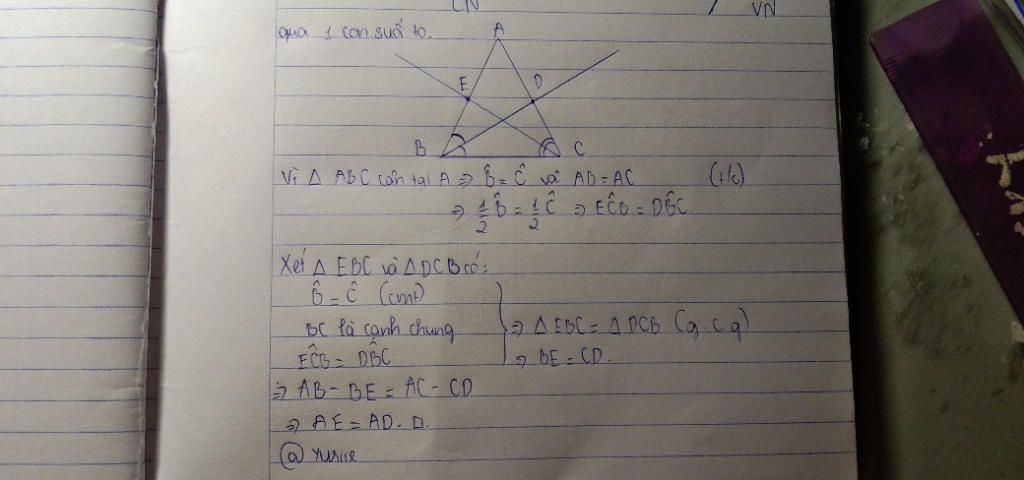 CN
VN
qua 1 con suối to.
A
E
D
B
C
Vì △ ABC cân tại A ⇒ B̂ = Ĉ và AB = AC (t/c)
⇒ 1/2 B̂ = 1/2 Ĉ ⇒ EĈB = DB̂C
Xét △ EBC và △DCB có:
B̂ = Ĉ (cmt)
BC là cạnh chung
EĈB = DB̂C
⇒ △ EBC = △ DCB (g.c.g)
⇒ BE = CD.
⇒ AB - BE = AC - CD
⇒ AE = AD. □.